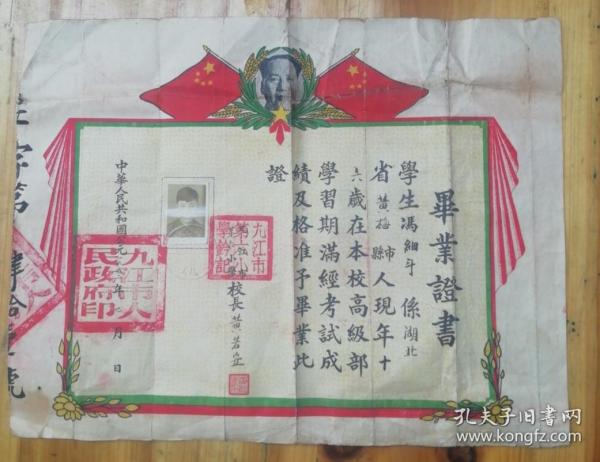 畢業證書
學生馮細斗係湖北
省黃梅縣市人現年十
六歲在本校高級部
學習期滿經考試成
績及格准予畢業此
證
九江市
學鈐記
校長黃若
中華人民共和國公元一九五 年 月 日
九江市人
民政府印
字第
號
孔夫子旧书网
www.kongfz.com